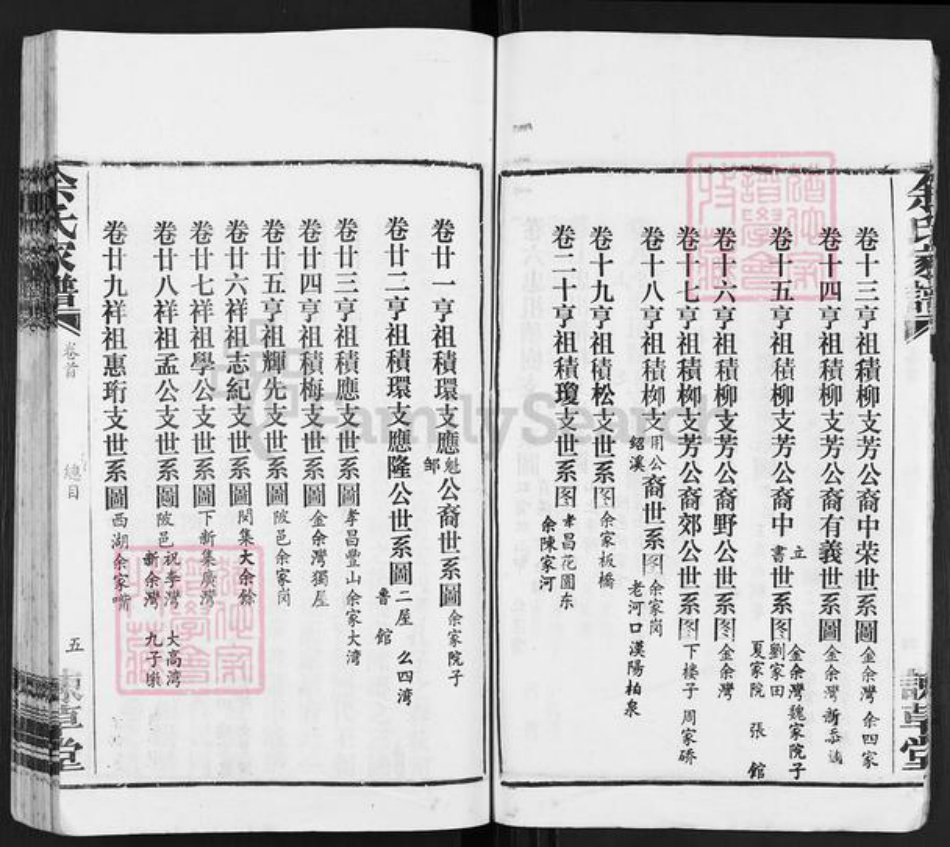 卷十三亨祖積柳支芳公裔中荣世系圖 金余灣 余四家
卷十四亨祖積柳支芳公裔有義世系圖 金余灣
卷十五亨祖積柳支芳公裔中立書世系图 金余灣魏家院子 劉家田 夏家院 張館
卷十六亨祖積柳支芳公裔野公世系图 金余灣
卷十七亨祖積柳支芳公裔郊公世系图 下樓子 周家磅
卷十八亨祖積柳支用公紹溪裔世系图 余家岗 老河口漢陽柏泉
卷十九亨祖積松支世系图 余家板橋
卷二十亨祖積瓊支世系图 孝昌花園东 余陳家河
卷廿一亨祖積環支應魁邹公裔世系圖 余家院子
卷廿二亨祖積環支應隆公世系圖 二屋 么四湾 魯館
卷廿三亨祖積應支世系圖 孝昌豐山余家大湾
卷廿四亨祖積梅支世系圖 金余灣獨屋
卷廿五亨祖輝先支世系圖 陂邑余家岗
卷廿六祥祖志紀支世系圖 閔集大余餘
卷廿七祥祖學公支世系圖 下新集廣灣
卷廿八祥祖孟公支世系圖 陂邑祝李灣 大高湾 新余灣 九子墩
卷廿九祥祖惠珩支世系圖 西湖余家嘴
余氏家譜
卷首
總目
五